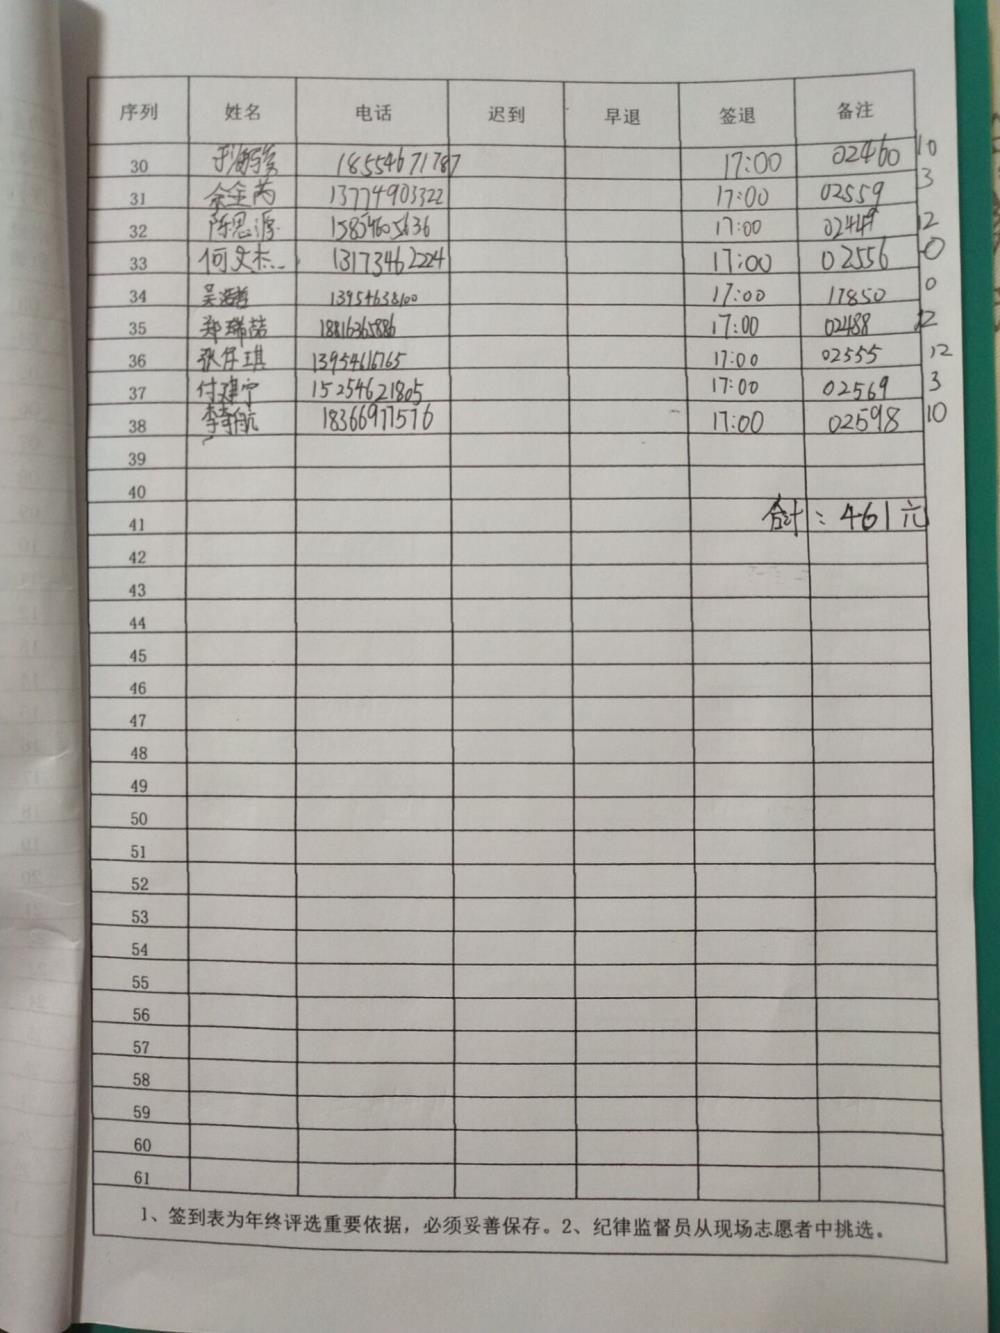 序列 姓名 电话 迟到 早退 签退 备注
30 18554671787 17:00 02460 10
31 余金芮 13774903322 17:00 02559 3
32 陈思源 15854605636 17:00 02449 12
33 何文杰 13173462224 17:00 02556 0
34 13954638100 17:00 17850 0
35 郑瑞喆 18816365886 17:00 02488 12
36 张仔琪 13954616765 17:00 02555 12
37 付建宁 15254621805 17:00 02569 3
38 18366977576 17:00 02598 10
39
40
41 合计:461元
42
43
44
45
46
47
48
49
50
51
52
53
54
55
56
57
58
59
60
61
1、签到表为年终评选重要依据，必须妥善保存。2、纪律监督员从现场志愿者中挑选。